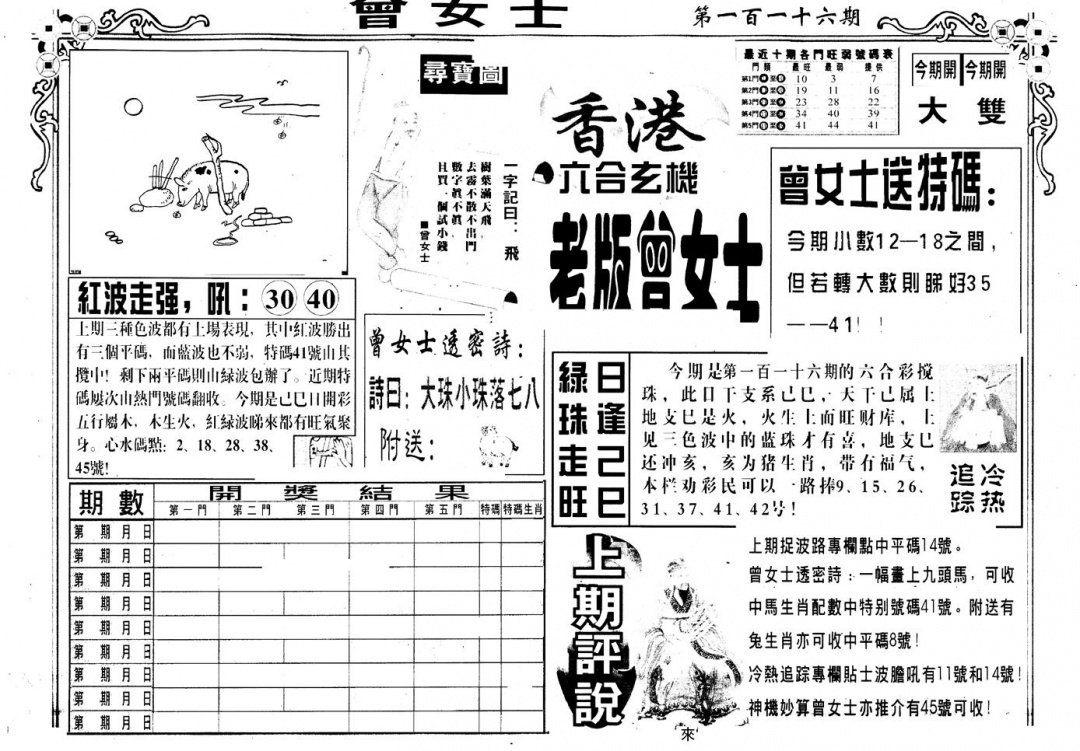 曾女士
第一百一十六期
尋寶圖
一字記曰：飛
樹葉滿天飛，
去霧不散不出門
數字真不真，
且買一個試小錢
■曾女士
香港
六合玄機
老版曾女士
最近十期各門旺弱號碼表
門類 最旺 最弱 提供
第1門 10 3 7
第2門 19 11 16
第3門 23 28 22
第4門 34 40 39
第5門 41 44 41
今期開 今期開
大 雙
曾女士送特碼：
今期小數12—18之間，
但若轉大數則睇好35
——41！！
紅波走强，吼：30 40
上期三種色波都有上場表現，其中紅波勝出
有三個平碼，而藍波也不弱，特碼41號由其
攬中！剩下兩平碼則由綠波包辦了。近期特
碼屢次由熱門號碼翻收。今期是己巳日開彩
五行屬木，木生火，紅綠波睇來都有旺氣聚
身。心水碼點：2、18、28、38、
45號！
曾女士透密詩：
詩曰：大珠小珠落七八
附送：
綠珠走旺
日逢己巳
今期是第一百一十六期的六合彩搅
珠，此日干支系己巳，天干己属土
地支巳是火，火生土而旺财库，上
见三色波中的蓝珠才有喜，地支巳
还冲亥，亥为猪生肖，带有福气，
本栏劝彩民可以一路捧9、15、26、
31、37、41、42号！
冷热
追踪
期數 開獎結果
第一門 第二門 第三門 第四門 第五門 特碼 特碼生肖
第 期 月 日
第 期 月 日
第 期 月 日
第 期 月 日
第 期 月 日
第 期 月 日
第 期 月 日
第 期 月 日
第 期 月 日
上期評說
上期捉波路專欄點中平碼14號。
曾女士透密詩：一幅畫上九頭馬，可收
中馬生肖配數中特別號碼41號。附送有
兔生肖亦可收中平碼8號！
冷熱追踪專欄貼士波膽吼有11號和14號！
神機妙算曾女士亦推介有45號可收！
來